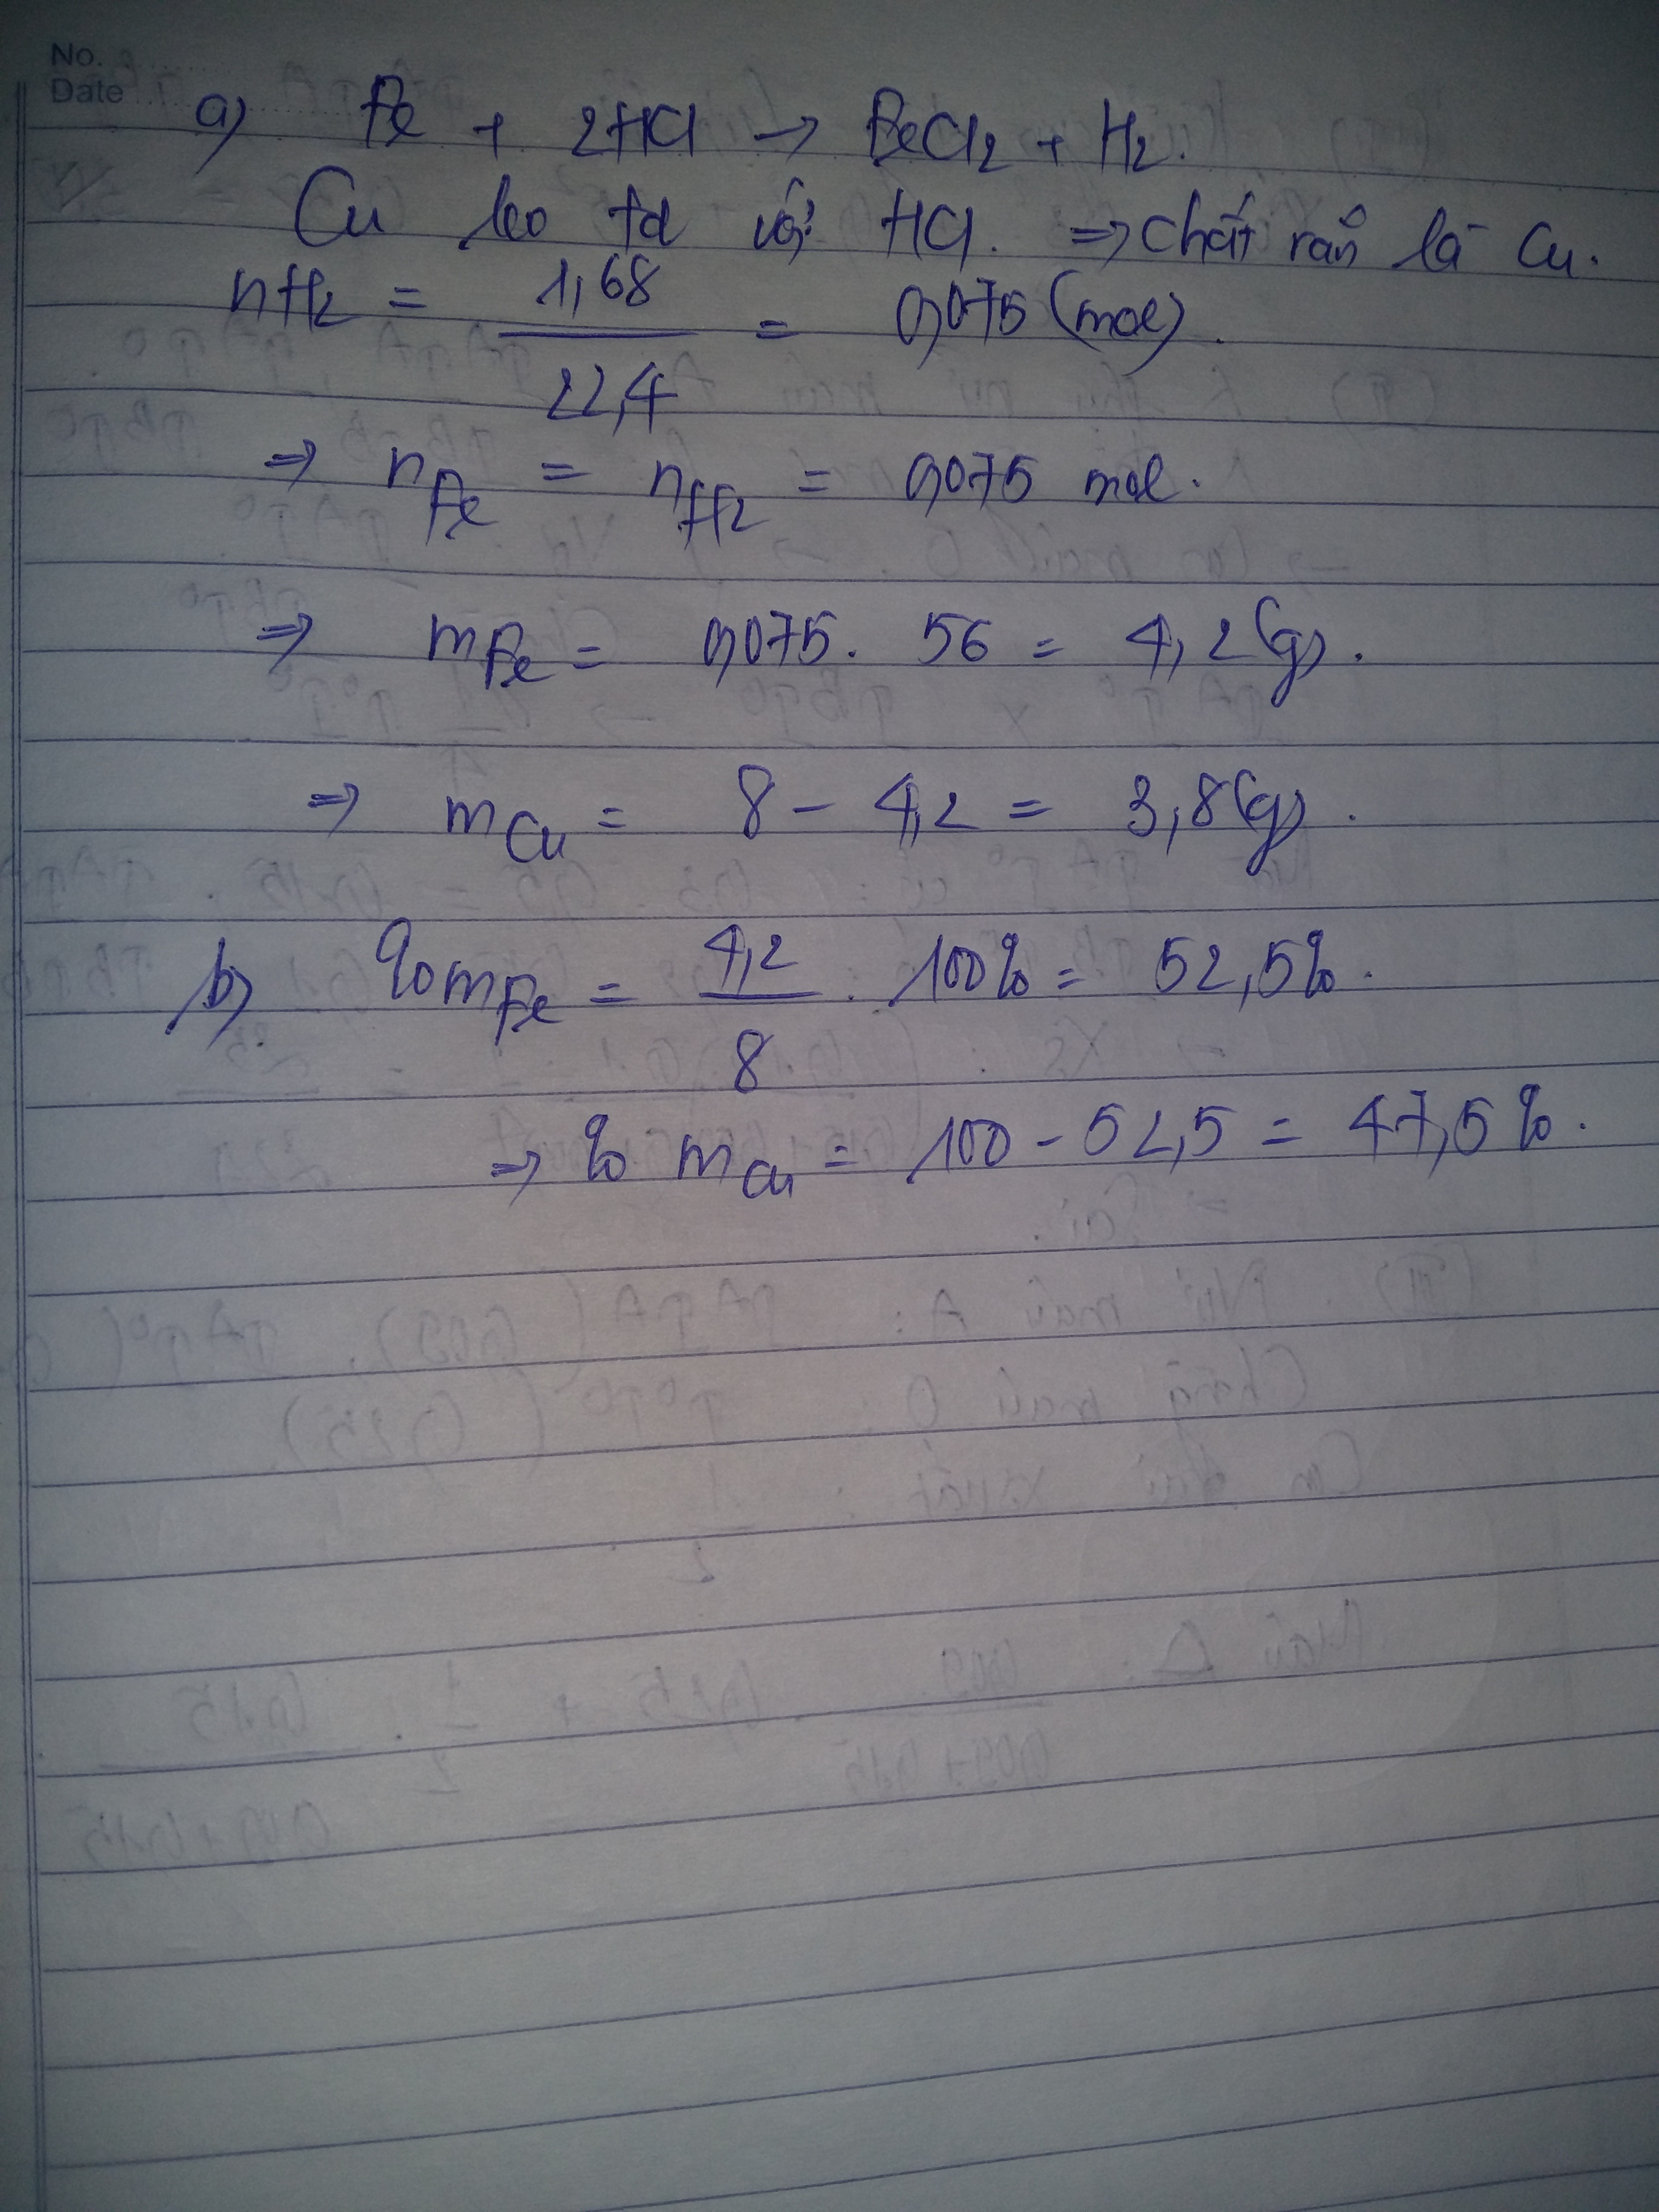 No.
Date
a) Fe + 2HCl → FeCl2 + H2.
Cu ko td với HCl. => Chất rắn là Cu.
nH2 = 1,68 / 22,4 = 0,075 (mol).
=> nFe = nH2 = 0,075 mol.
=> mFe = 0,075. 56 = 4,2(g).
=> mCu = 8 - 4,2 = 3,8(g).
b) %mFe = 4,2 / 8 . 100% = 52,5%.
=> % mCu = 100 - 52,5 = 47,5%.